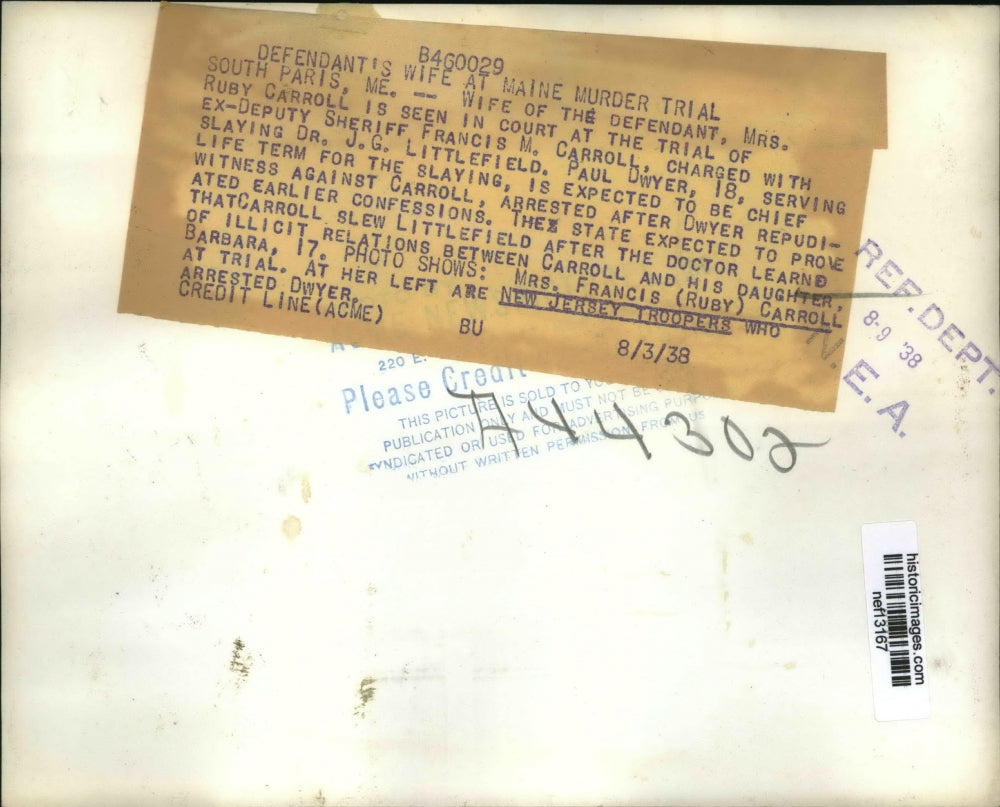 B460029
DEFENDANT'S WIFE AT MAINE MURDER TRIAL
SOUTH PARIS, ME. -- WIFE OF THE DEFENDANT, MRS.
RUBY CARROLL IS SEEN IN COURT AT THE TRIAL OF
EX-DEPUTY SHERIFF FRANCIS M. CARROLL, CHARGED WITH
SLAYING DR. J.G. LITTLEFIELD. PAUL DWYER, 18, SERVING
LIFE TERM FOR THE SLAYING, IS EXPECTED TO BE CHIEF
WITNESS AGAINST CARROLL, ARRESTED AFTER DWYER REPUDI-
ATED EARLIER CONFESSIONS. THE STATE EXPECTED TO PROVE
THATCARROLL SLEW LITTLEFIELD AFTER THE DOCTOR LEARNED
OF ILLICIT RELATIONS BETWEEN CARROLL AND HIS DAUGHTER,
BARBARA, 17. PHOTO SHOWS: MRS. FRANCIS (RUBY) CARROLL
AT TRIAL. AT HER LEFT ARE NEW JERSEY TROOPERS WHO
ARRESTED DWYER.
CREDIT LINE(ACME)
BU
8/3/38
REF. DEPT.
8-9 '38
N. E. A.
220 E.
Please Credit
THIS PICTURE IS SOLD TO YOU
PUBLICATION ONLY AND MUST NOT BE
SYNDICATED OR USED FOR ADVERTISING PURP
WITHOUT WRITTEN PERMISSION FROM US
A44302
historicimages.com
nef13167